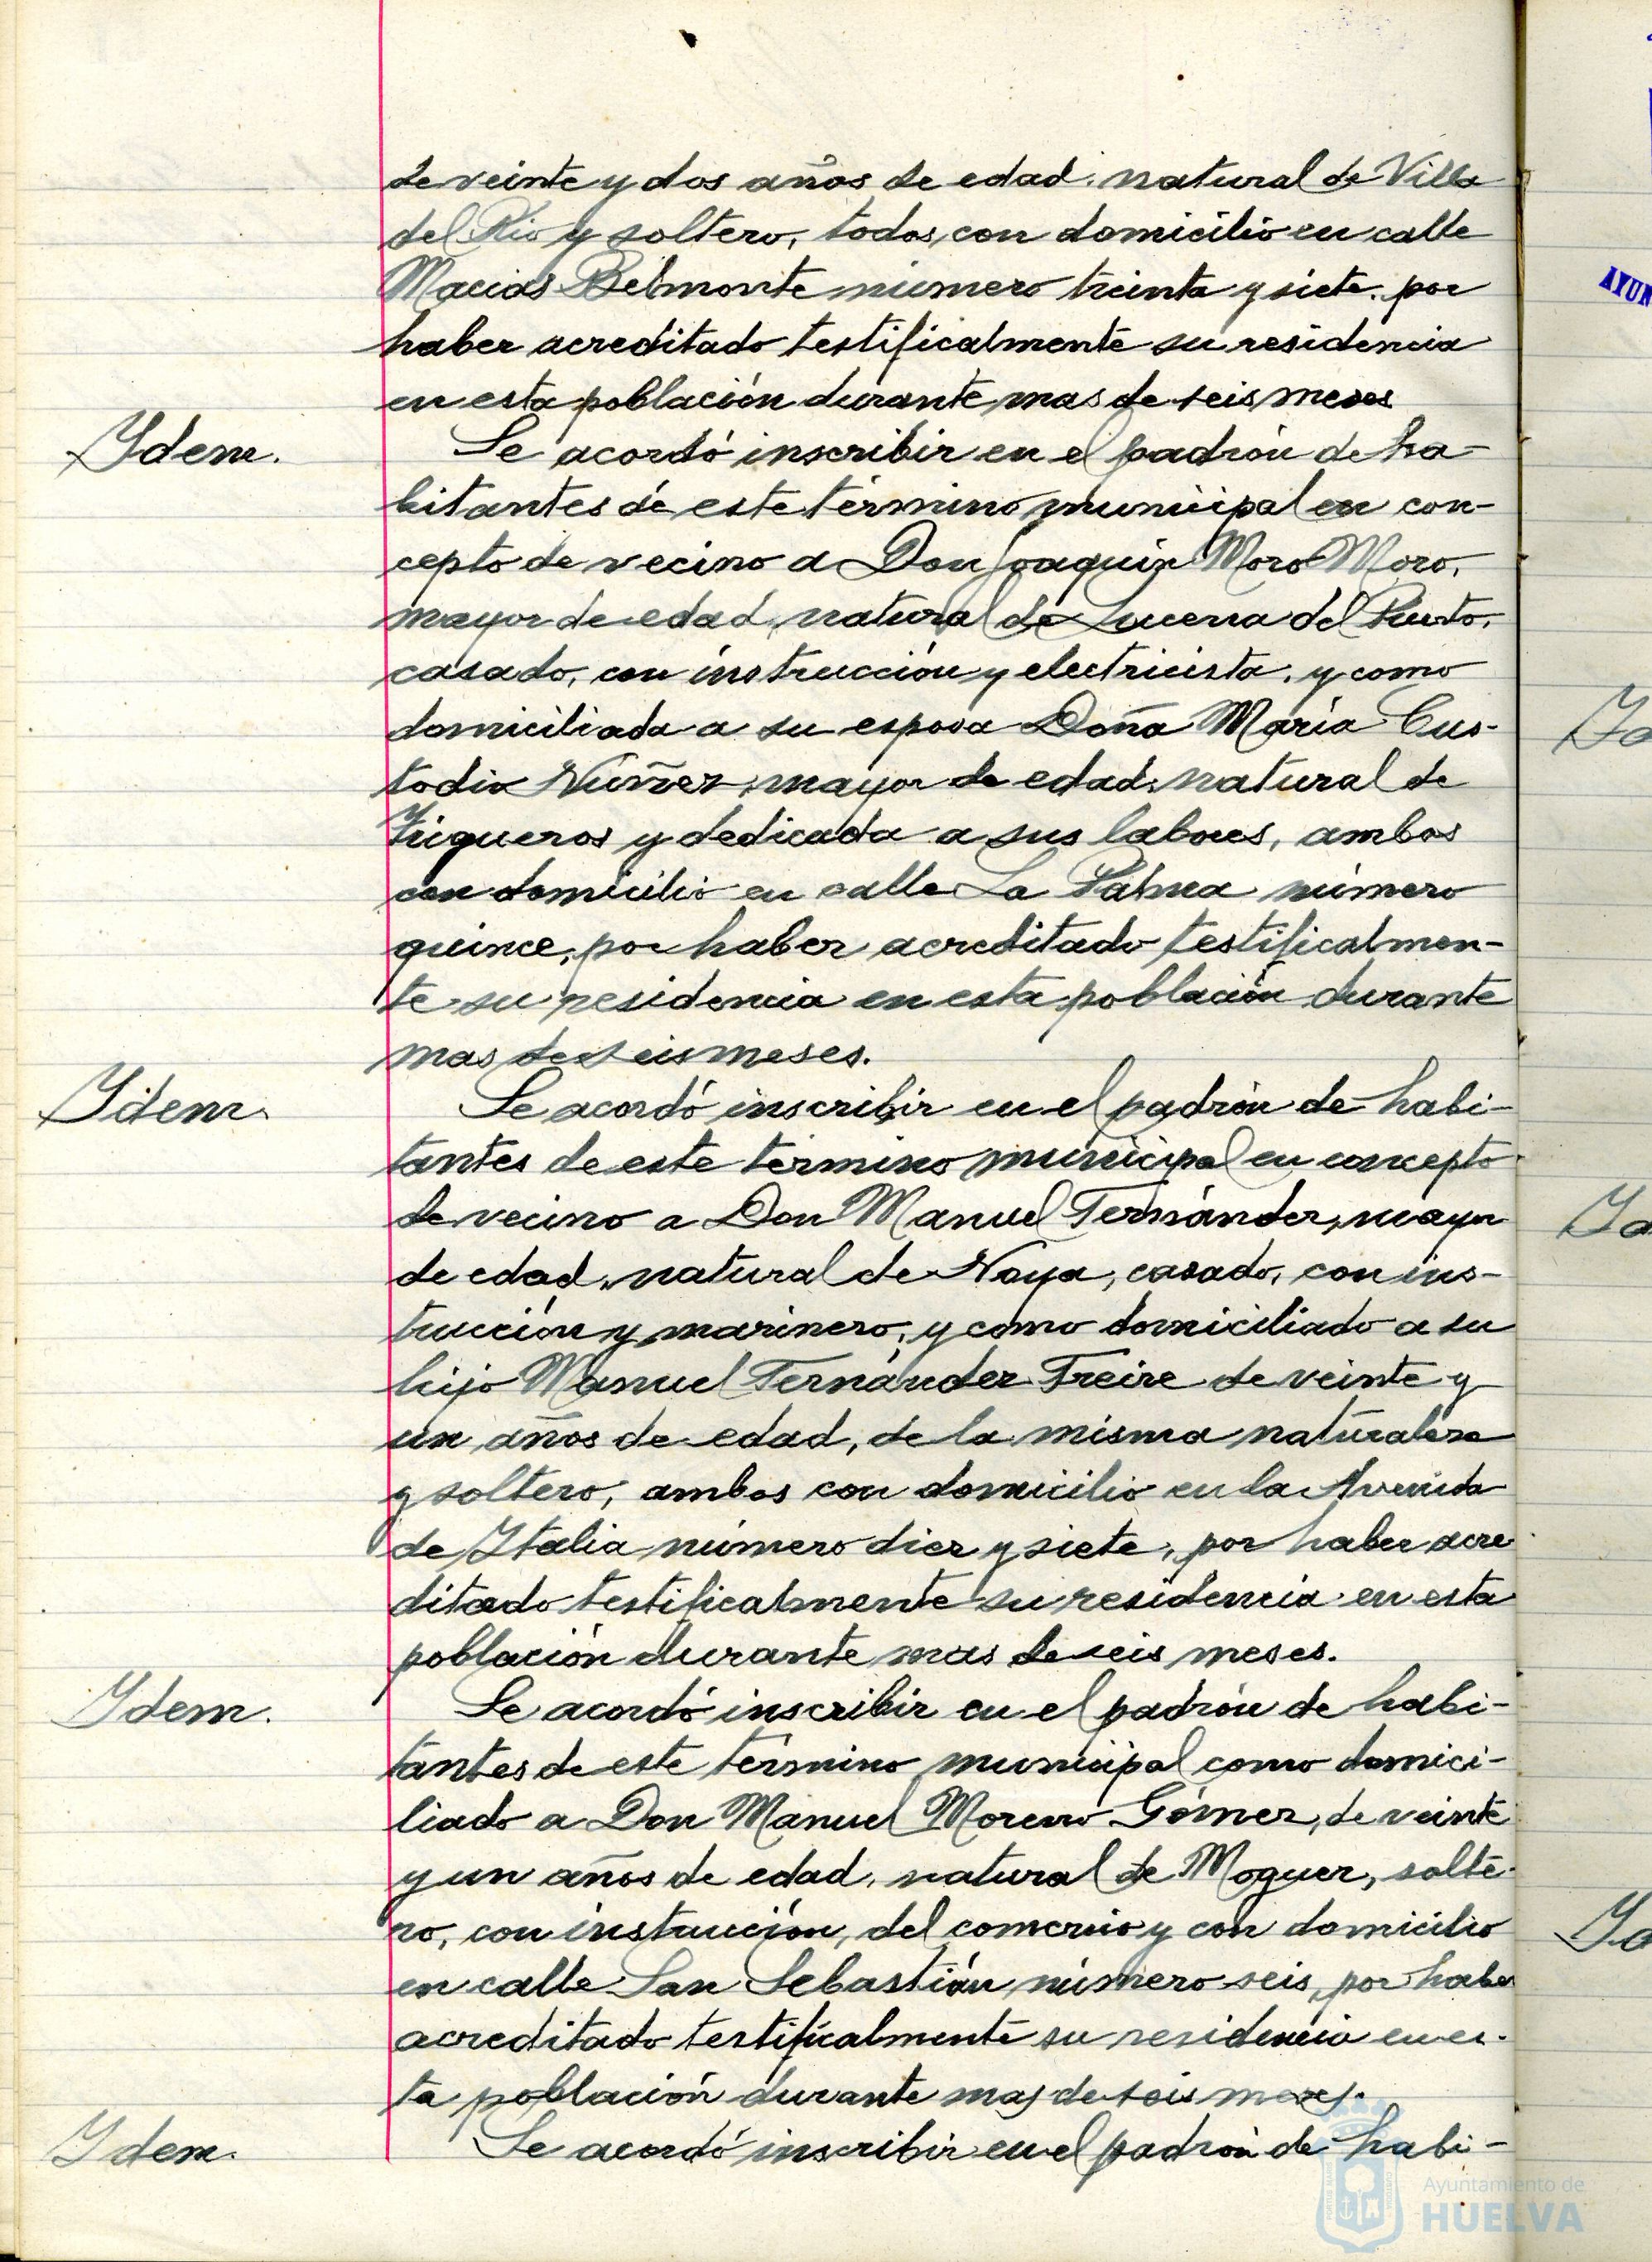 de veinte y dos años de edad, natural de Villa
del Rio y soltero, todos con domicilio en calle
Macias Belmonte número treinta y siete, por
haber acreditado testificalmente su residencia
en esta población durante mas de seis meses
Ydem.
Se acordó inscribir en el padrón de ha-
bitantes de este término municipal en con-
cepto de vecino a Don Joaquin Moro Moro,
mayor de edad, natural de Lucena del Puerto,
casado, con instrucción y electricista, y como
domiciliada a su esposa Doña Maria Cus-
todio Núñez, mayor de edad, natural de
Trigueros y dedicada a sus labores, ambos
con domicilio en calle La Palma número
quince, por haber acreditado testificalmen-
te su residencia en esta población durante
mas de seis meses.
Ydem.
Se acordó inscribir en el padrón de habi-
tantes de este término municipal en concepto
de vecino a Don Manuel Fernández, mayor
de edad, natural de Noya, casado, con ins-
trucción y marinero, y como domiciliado a su
hijo Manuel Fernández Freire de veinte y
un años de edad, de la misma naturaleza
y soltero, ambos con domicilio en la Avenida
de Italia número diez y siete, por haber acre
ditado testificalmente su residencia en esta
población durante mas de seis meses.
Ydem.
Se acordó inscribir en el padrón de habi-
tantes de este término municipal como domici-
liado a Don Manuel Moreno Gómez, de veinte
y un años de edad, natural de Moguer, solte-
ro, con instrucción, del comercio y con domicilio
en calle San Sebastián número seis, por haber
acreditado testificalmente su residencia en es-
ta población durante mas de seis meses.
Ydem.
Se acordó inscribir en el padrón de habi-
Ayuntamiento de
HUELVA
AYUN
Yd
Yd
Yd